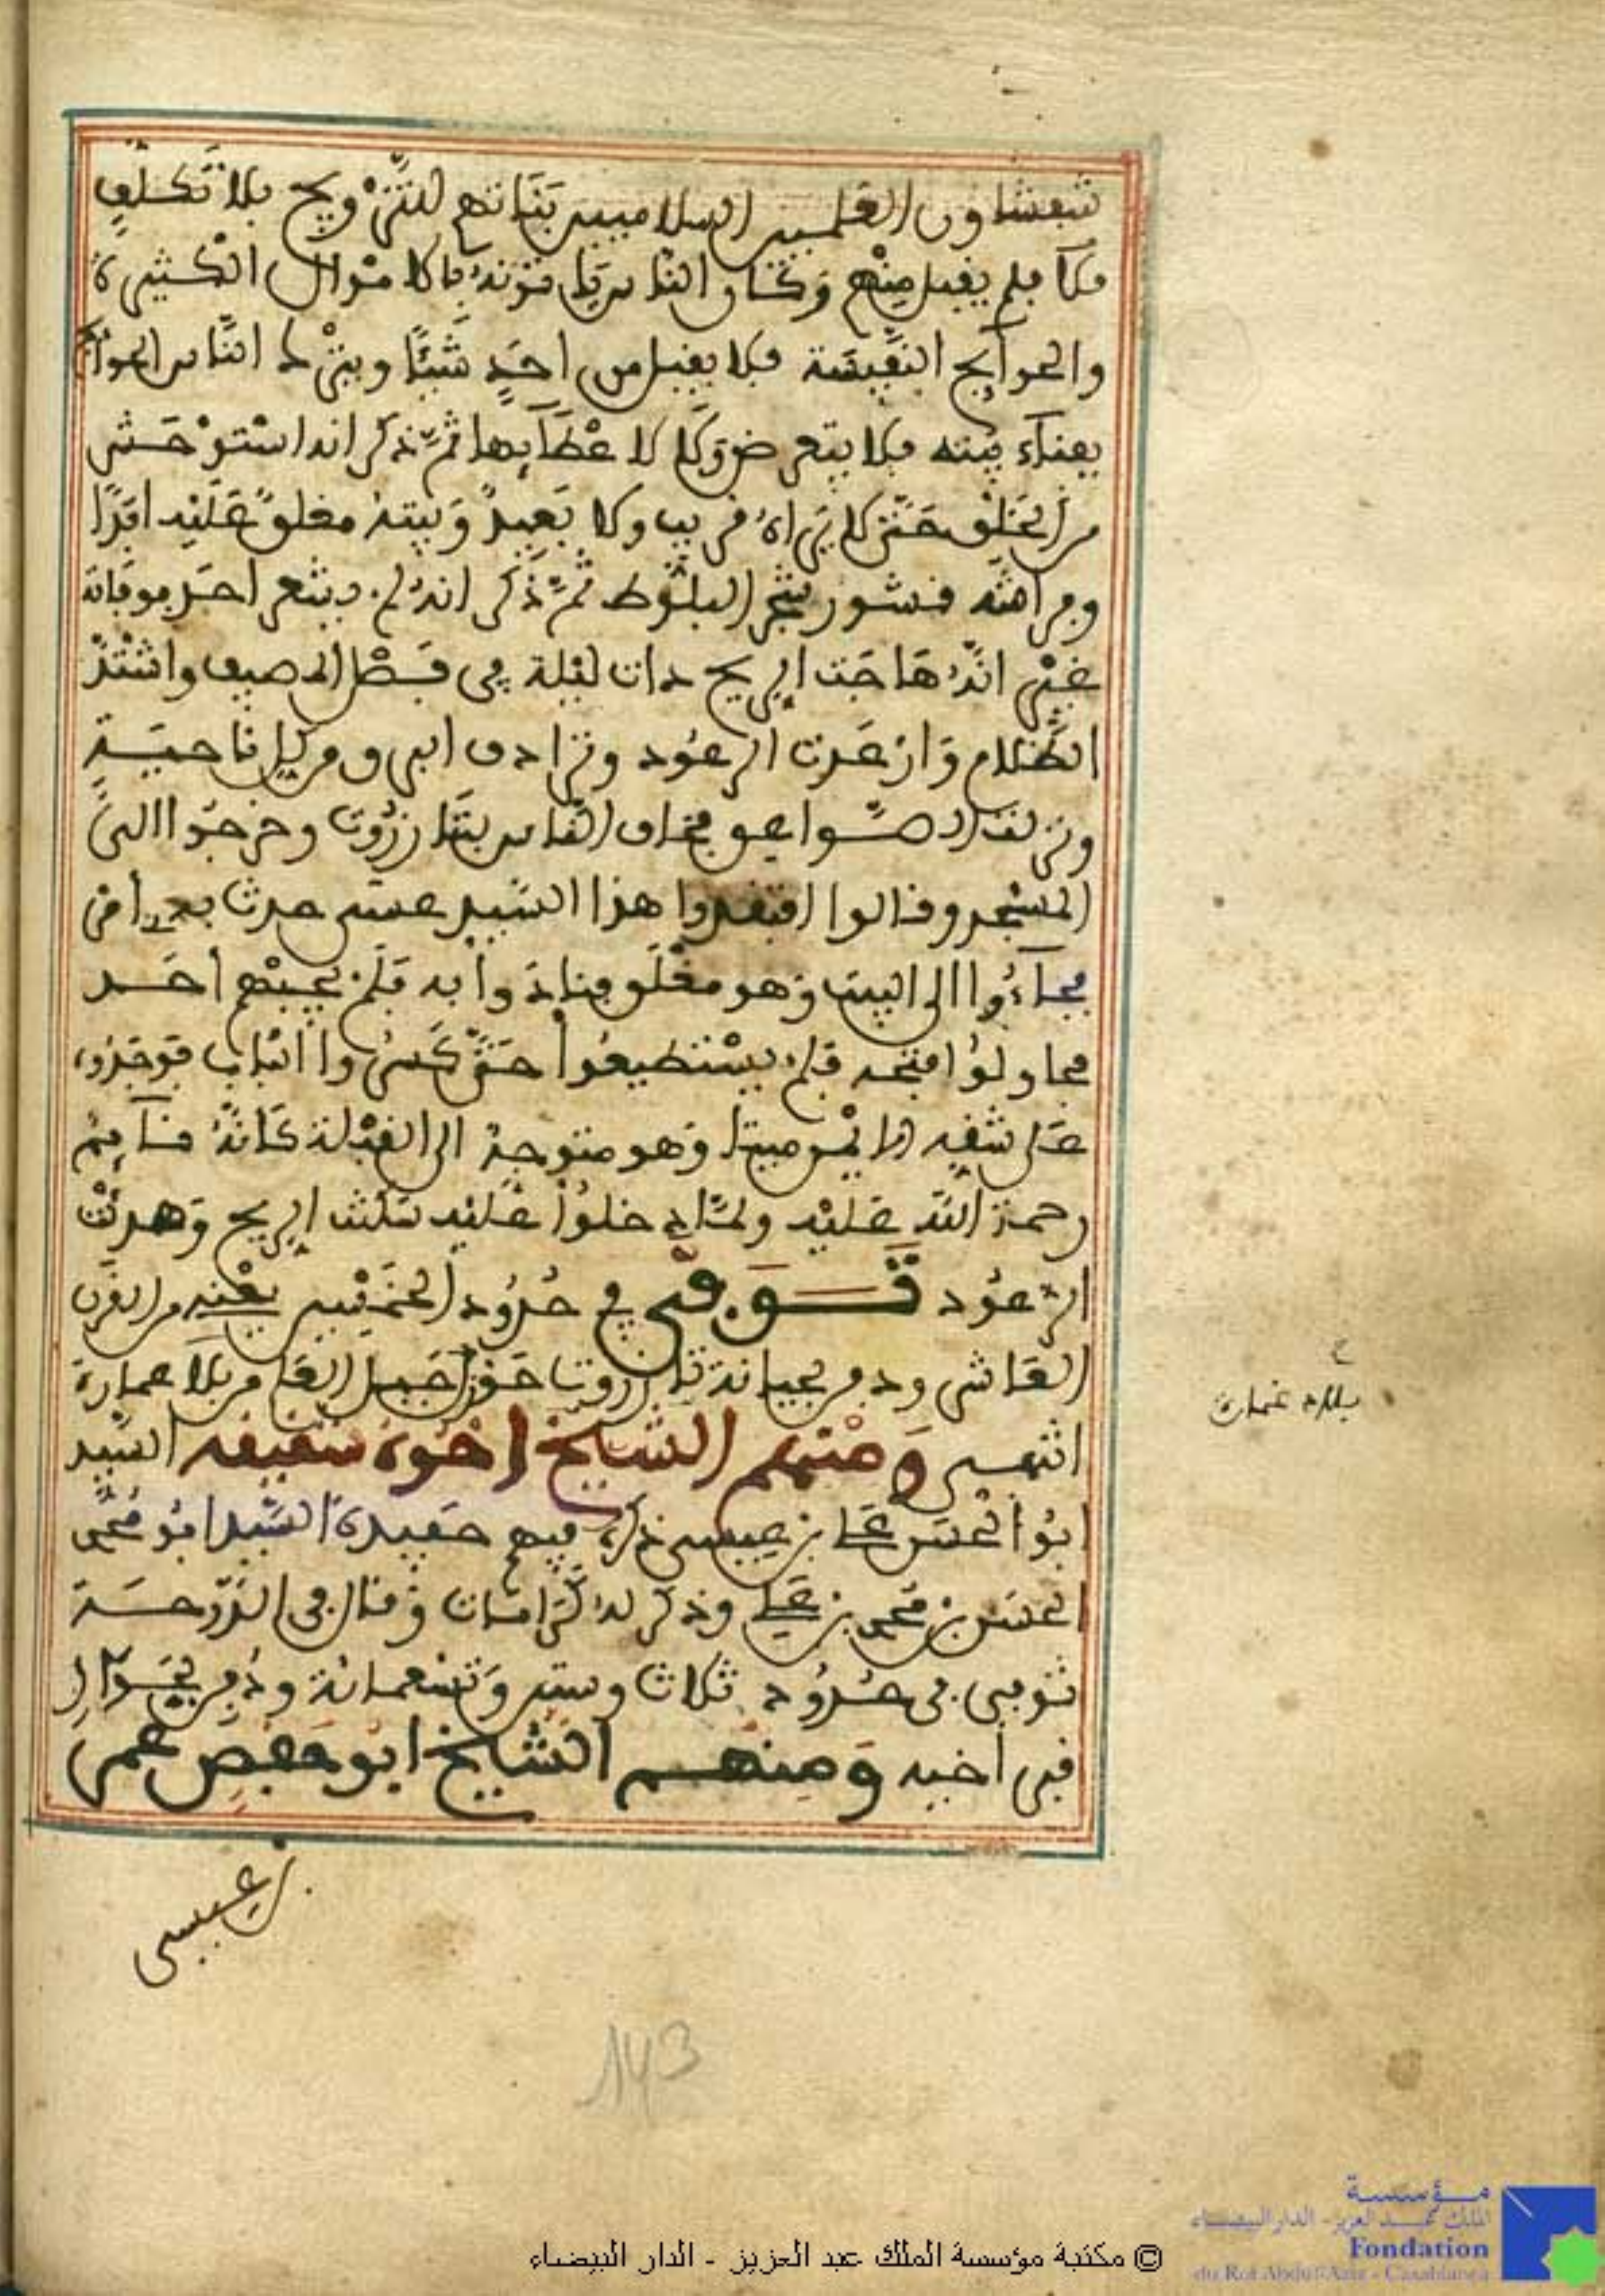 بشفشاون العلميين السلاميين بناتهم للتزويج بلا تكلف
ملا فلم يقبل منهم وكان الناس ياتونه بالاموال الكثيرة
والحوآيج النفيسة فلا يقبل من احد شيئا ويترك الناس الحوآيج
بفنآء بيته فلا يتعرض ولا لاعطآيها ثم ذكر انه استوحش
من الخلق حتى لا يراه قريب ولا بعيد وبيته مغلوق عليه ابدا
وفراشه قشور شجر البلوط ثم ذكر انه لم يشعر احد بوفاته
غير انه هاجت الريح ذات ليلة في فصل المصيف واشتد
الظلام وارعدت الرعود وترادف البرق من كل ناحية
ونزلت الصواعق فخاف الناس بتازروت وخرجوا الى
المسجد وقالوا افتقدوا هذا السيد عسى حدث به امر
فجآءوا الى البيت وهو مغلوق فنادوا به فلم يجيبهم احد
فحاولوا فتحه فلم يستطيعوا حتى كسروا الباب فوجدوه
على شقه الايمن ميتا وهو متوجه الى القبلة كانه نآيم
رحمة الله عليه ولما دخلوا عليه سكنت الريح وهدنت
الرعود توفي في حدود الخمسين يعنه من القرن
العاشر ودفن بجبانة تازروت حوز جبل العلم بلاد غمارة
انتهى ومنهم الشيخ اخوه شقيقه السيد
ابو الحسن علي بن عيسى ذكره فيهم حفيده السيد ابو محمد
الحسن بن محمد بن علي وذكر له كرامات وقال في الدوحة
توفي في حدود ثلاث وستين وتسعمائة ودفن بجوار
قبر اخيه ومنهم الشيخ ابو حفص عمر
بن عيسى
بلاد غمارة
143
© مكتبة مؤسسة الملك عبد العزيز - الدار البيضاء
مؤسسة
الملك عبد العزيز - الدار البيضاء
Fondation
du Roi Abdul-Aziz - Casablanca